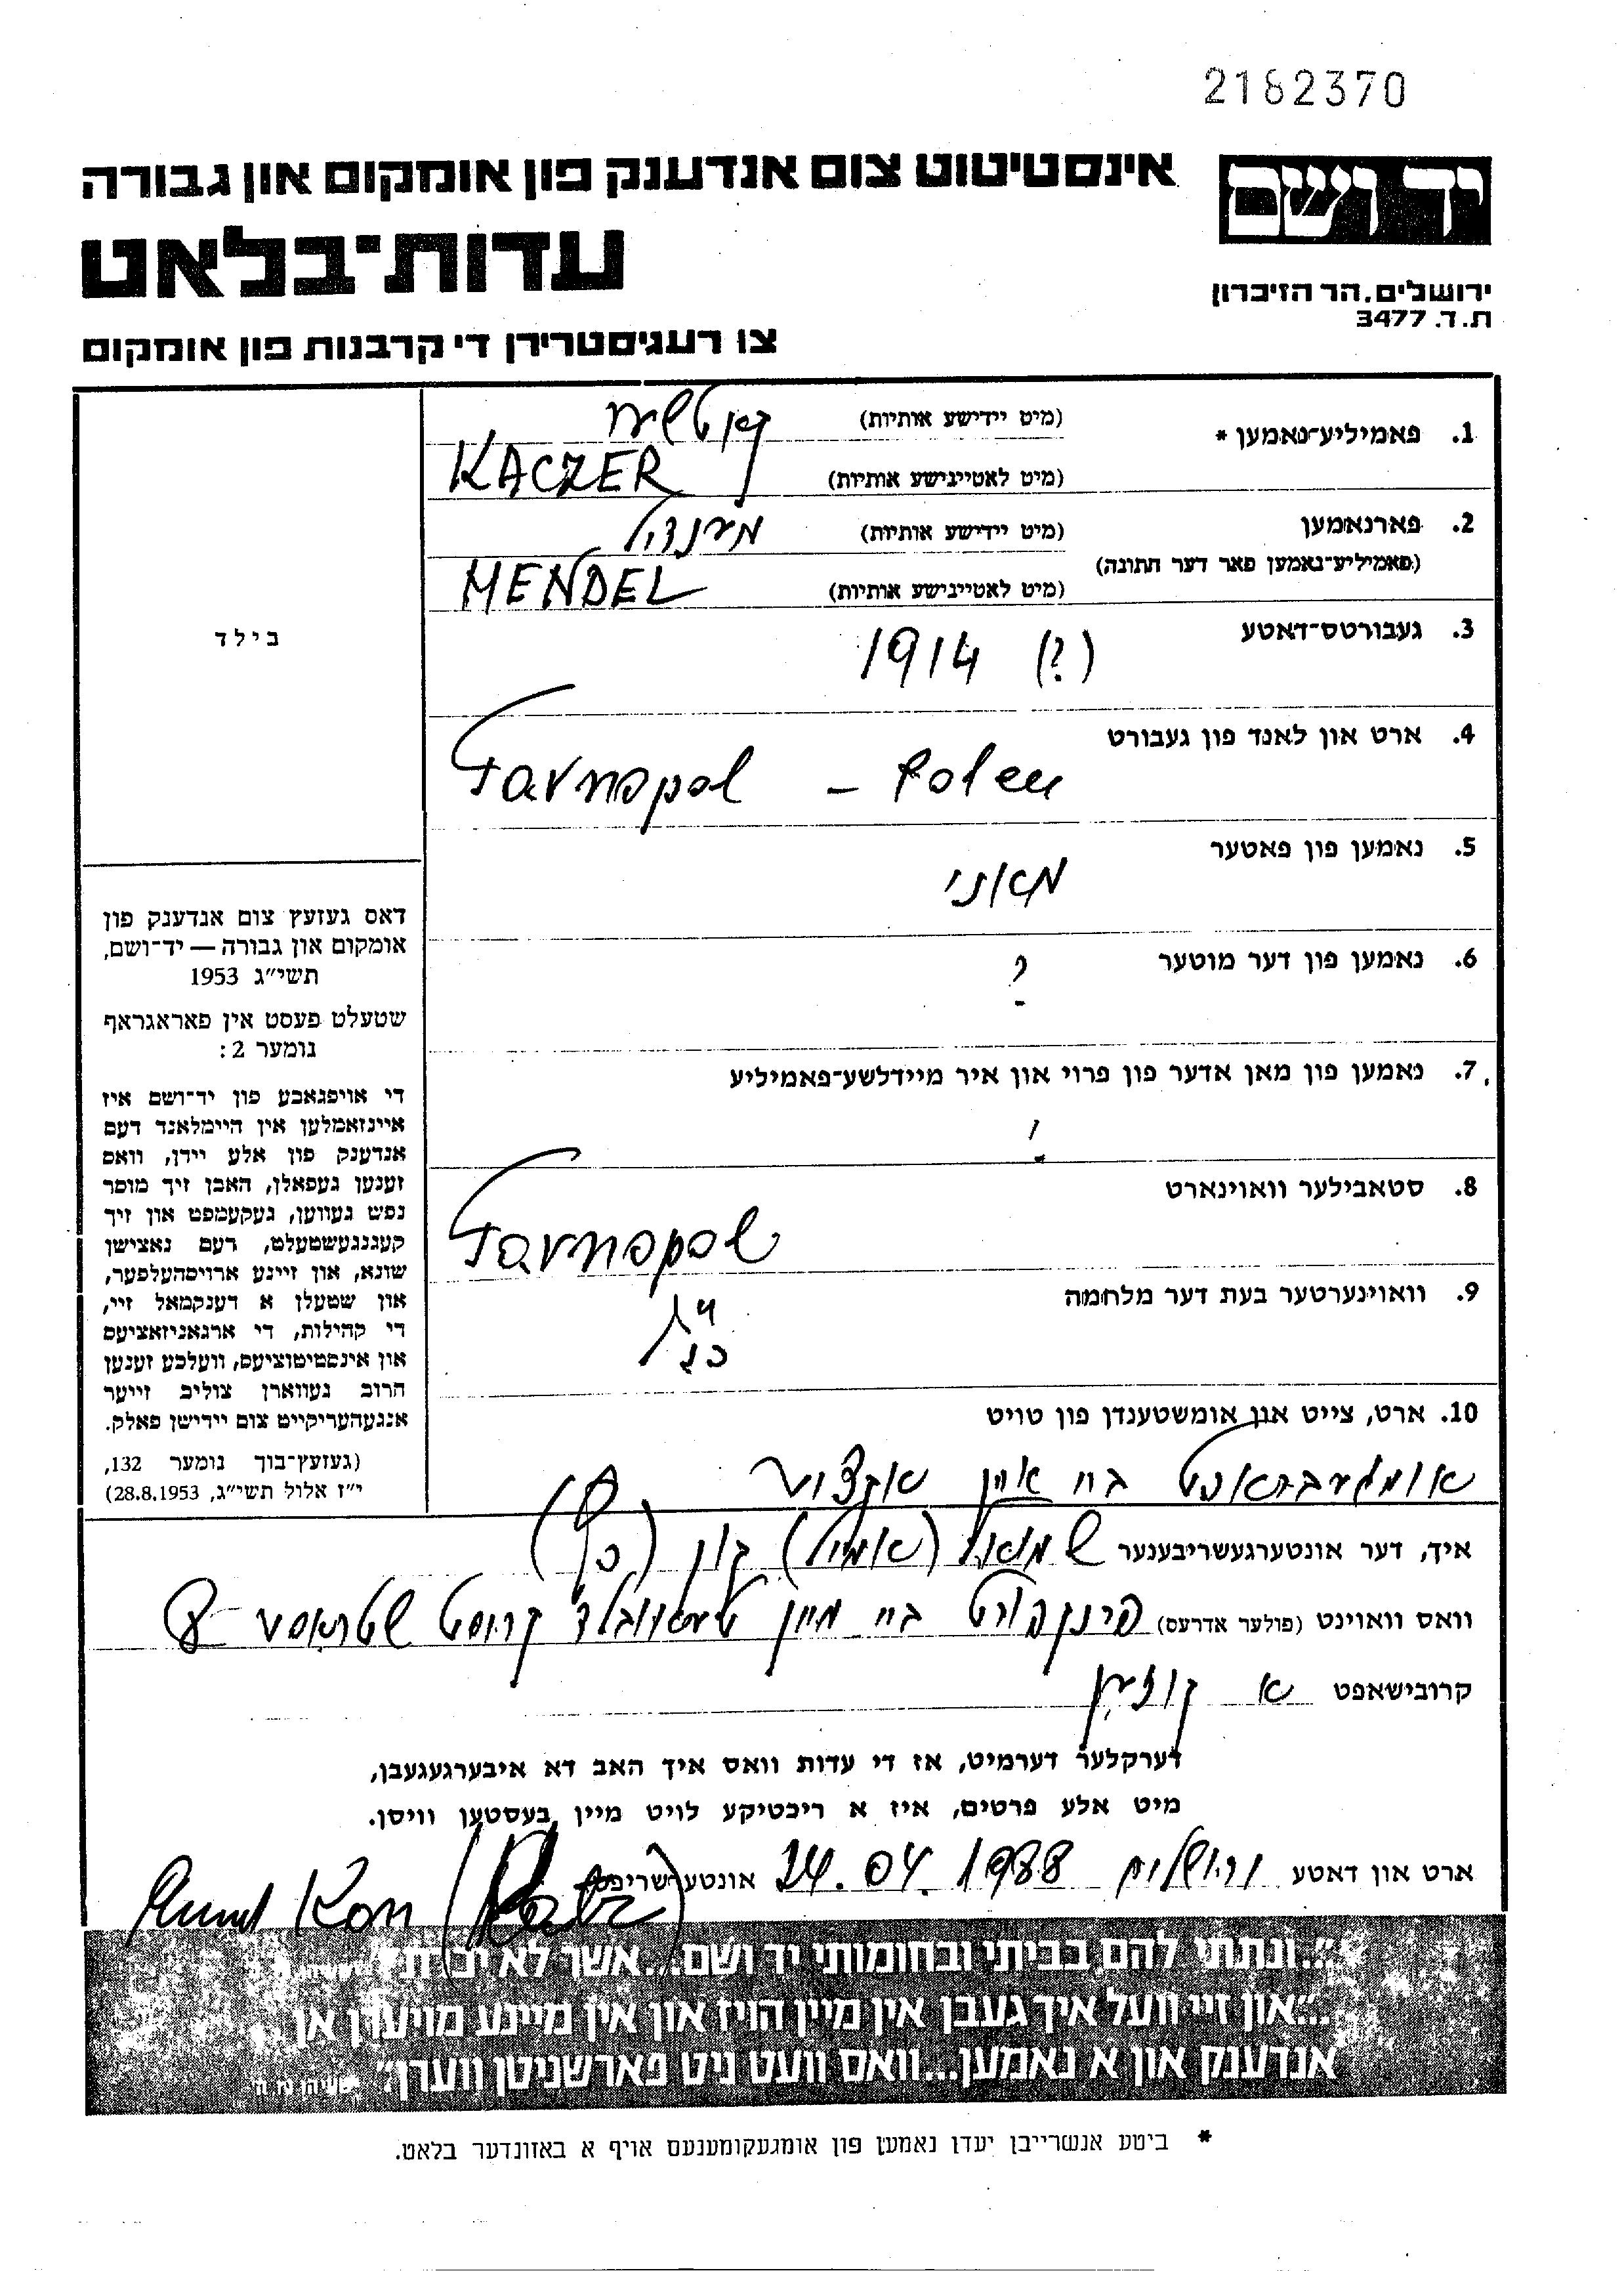 2182370
יד ושם
אינסטיטוט צום אנדענק פון אומקום און גבורה
עדות־בלאט
ירושלים, הר הזיכרון
ת.ד. 3477
צו רעגיסטרירן די קרבנות פון אומקום
1. פאמיליע־נאמען *
(מיט יידישע אותיות) קאטשער
(מיט לאטיינישע אותיות) KACZER
2. פארנאמען
(פאמיליע־נאמען פאר דער חתונה)
(מיט יידישע אותיות) מענדל
(מיט לאטיינישע אותיות) MENDEL
3. געבורטס־דאטע
1914 (?)
4. ארט און לאנד פון געבורט
Tarnopol – Polen
5. נאמען פון פאטער
מאני
6. נאמען פון דער מוטער
?
7. נאמען פון מאן אדער פון פרוי און איר מיידלשע־פאמיליע
8. סטאבילער וואוינארט
Tarnopol
9. וואוינערטער בעת דער מלחמה
10. ארט, צייט און אומשטענדן פון טויט
אומגעבראכט ביי איין אקציע
בילד
דאס געזעץ צום אנדענק פון
אומקום און גבורה — יד־ושם,
תשי״ג 1953
שטעלט פעסט אין פאראגראף
נומער 2:
די אויפגאבע פון יד־ושם איז
איינזאמלען אין היימלאנד דעם
אנדענק פון אלע יידן, וואס
זענען געפאלן, האבן זיך מוסר
נפש געווען, געקעמפט און זיך
קעגנגעשטעלט, דעם נאצישן
שונא, און זיינע ארויסהעלפער,
און שטעלן א דענקמאל זיי,
די קהילות, די ארגאניזאציעס
און אינסטיטוציעס, וועלכע זענען
חרוב געווארן צוליב זייער
אנגעהעריקייט צום יידישן פאלק.
(געזעץ־בוך נומער 132,
י״ז אלול תשי״ג, 28.8.1953)
איך, דער אונטערגעשריבענער שמואל (אמיל) קון (כץ)
וואס וואוינט (פולער אדרעס) ביי מיין שטראסע
קרובישאפט א קוזין
דערקלער דערמיט, אז די עדות וואס איך האב דא איבערגעגעבן,
מיט אלע פרטים, איז א ריכטיקע לויט מיין בעסטען וויסן.
ארט און דאטע ירושלים 24.04.1988 אונטערשריפט Kon (Katz)
״...ונתתי להם בביתי ובחומותי יד ושם... אשר לא יכרת״
״...און זיי וועל איך געבן אין מיין הויז און אין מיינע מויערן אן
אנדענק און א נאמען... וואס וועט ניט פארשניטן ווערן״
* ביטע אנשרייבן יעדן נאמען פון אומגעקומענעם אויף א באזונדער בלאט.